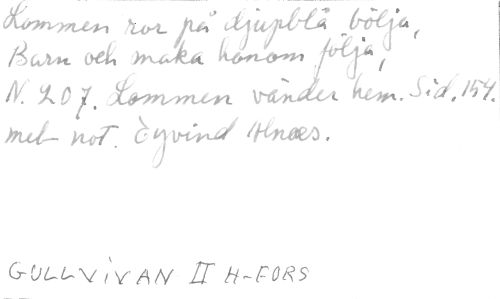 Lommen ror på djupblå bölja,
Barn och maka honom följa,
N. 207. Lommen vänder hem. Sid. 154.
mel- not. Eyvind Alnæs.
GULLVIVAN II H-FORS